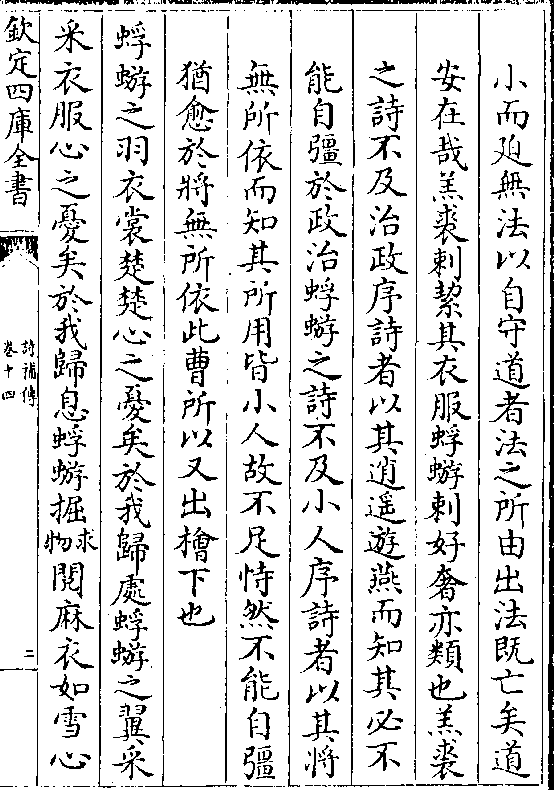 小而廹無法以自守道者法之所由出法既亡矣道
安在哉羔裘刺絜其衣服蜉蝣刺好奢亦類也羔裘
之詩不及治政序詩者以其逍遥遊燕而知其必不
能自彊於政治蜉蝣之詩不及小人序詩者以其將
無所依而知其所用皆小人故不足恃然不能自彊
猶愈於將無所依此曹所以又出檜下也
蜉蝣之羽衣裳楚楚心之憂矣於我歸處蜉蝣之翼采
采衣服心之憂矣於我歸息蜉蝣掘求物閱麻衣如雪心
欽定四庫全書
詩補傳
卷十四
二